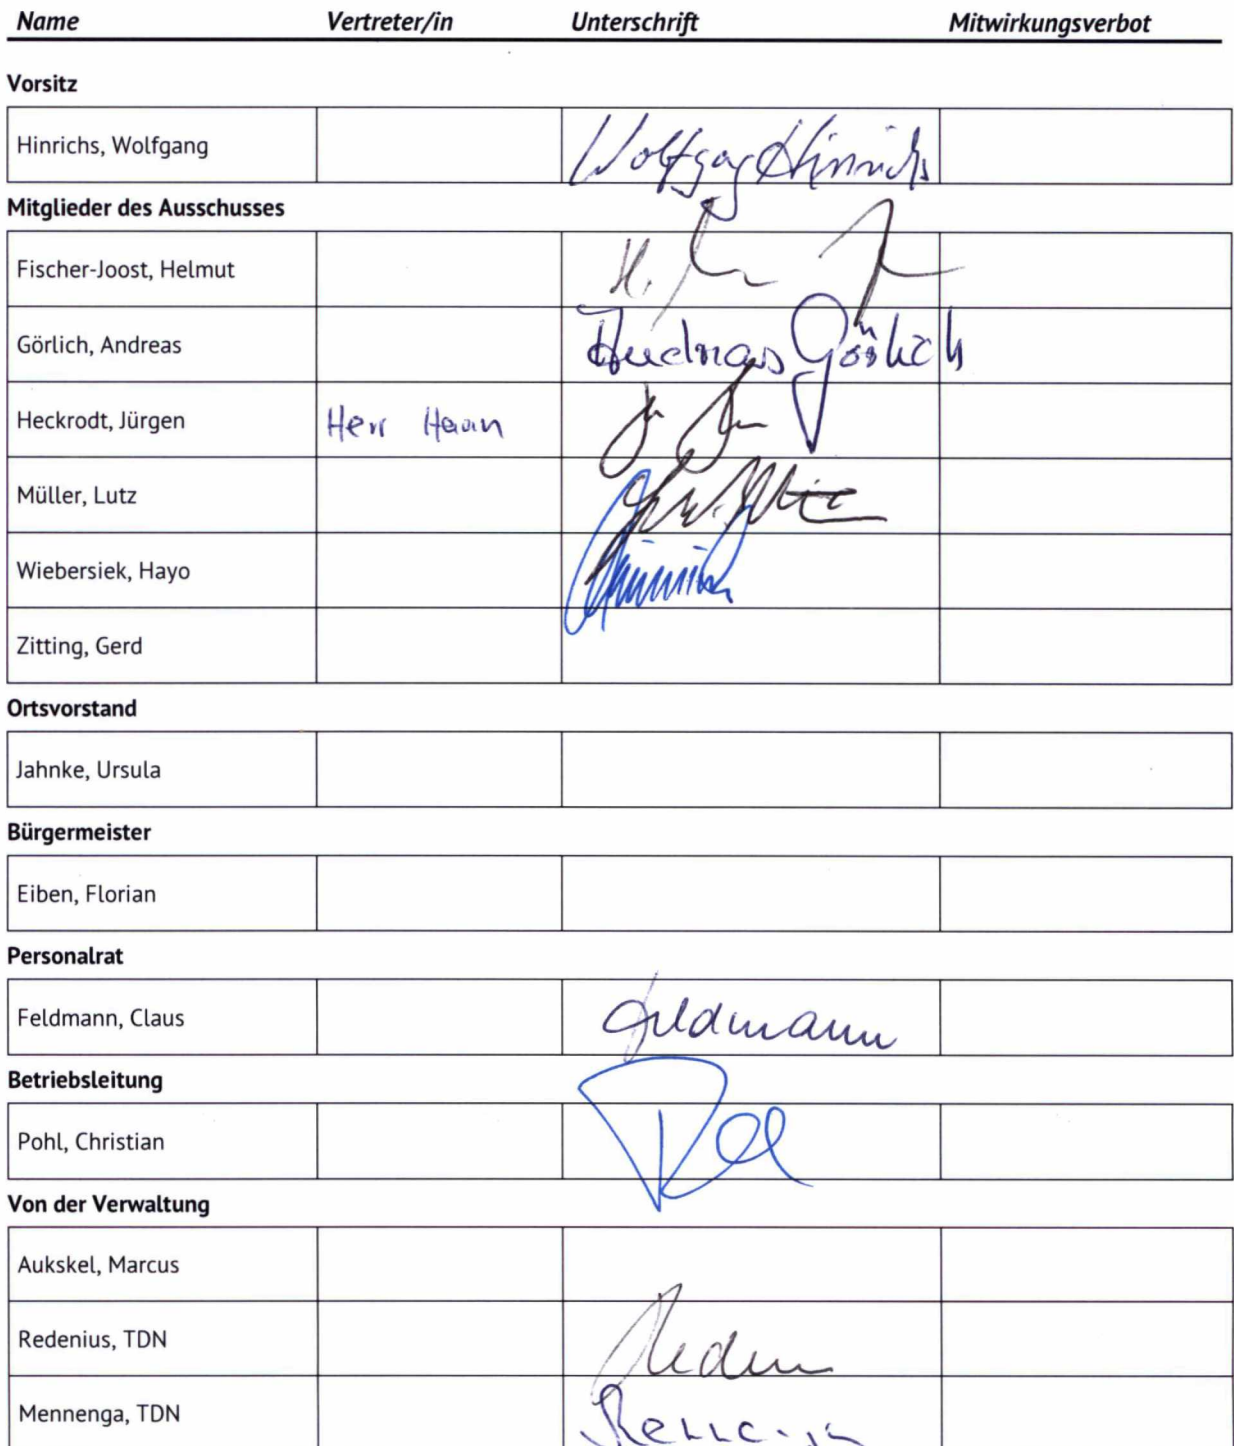 Name Vertreter/in Unterschrift Mitwirkungsverbot
Vorsitz
Hinrichs, Wolfgang Wolfgang Hinrichs
Mitglieder des Ausschusses
Fischer-Joost, Helmut
Görlich, Andreas Andreas Görlich
Heckrodt, Jürgen Herr
Müller, Lutz
Wiebersiek, Hayo
Zitting, Gerd
Ortsvorstand
Jahnke, Ursula
Bürgermeister
Eiben, Florian
Personalrat
Feldmann, Claus Feldmann
Betriebsleitung
Pohl, Christian
Von der Verwaltung
Aukskel, Marcus
Redenius, TDN
Mennenga, TDN